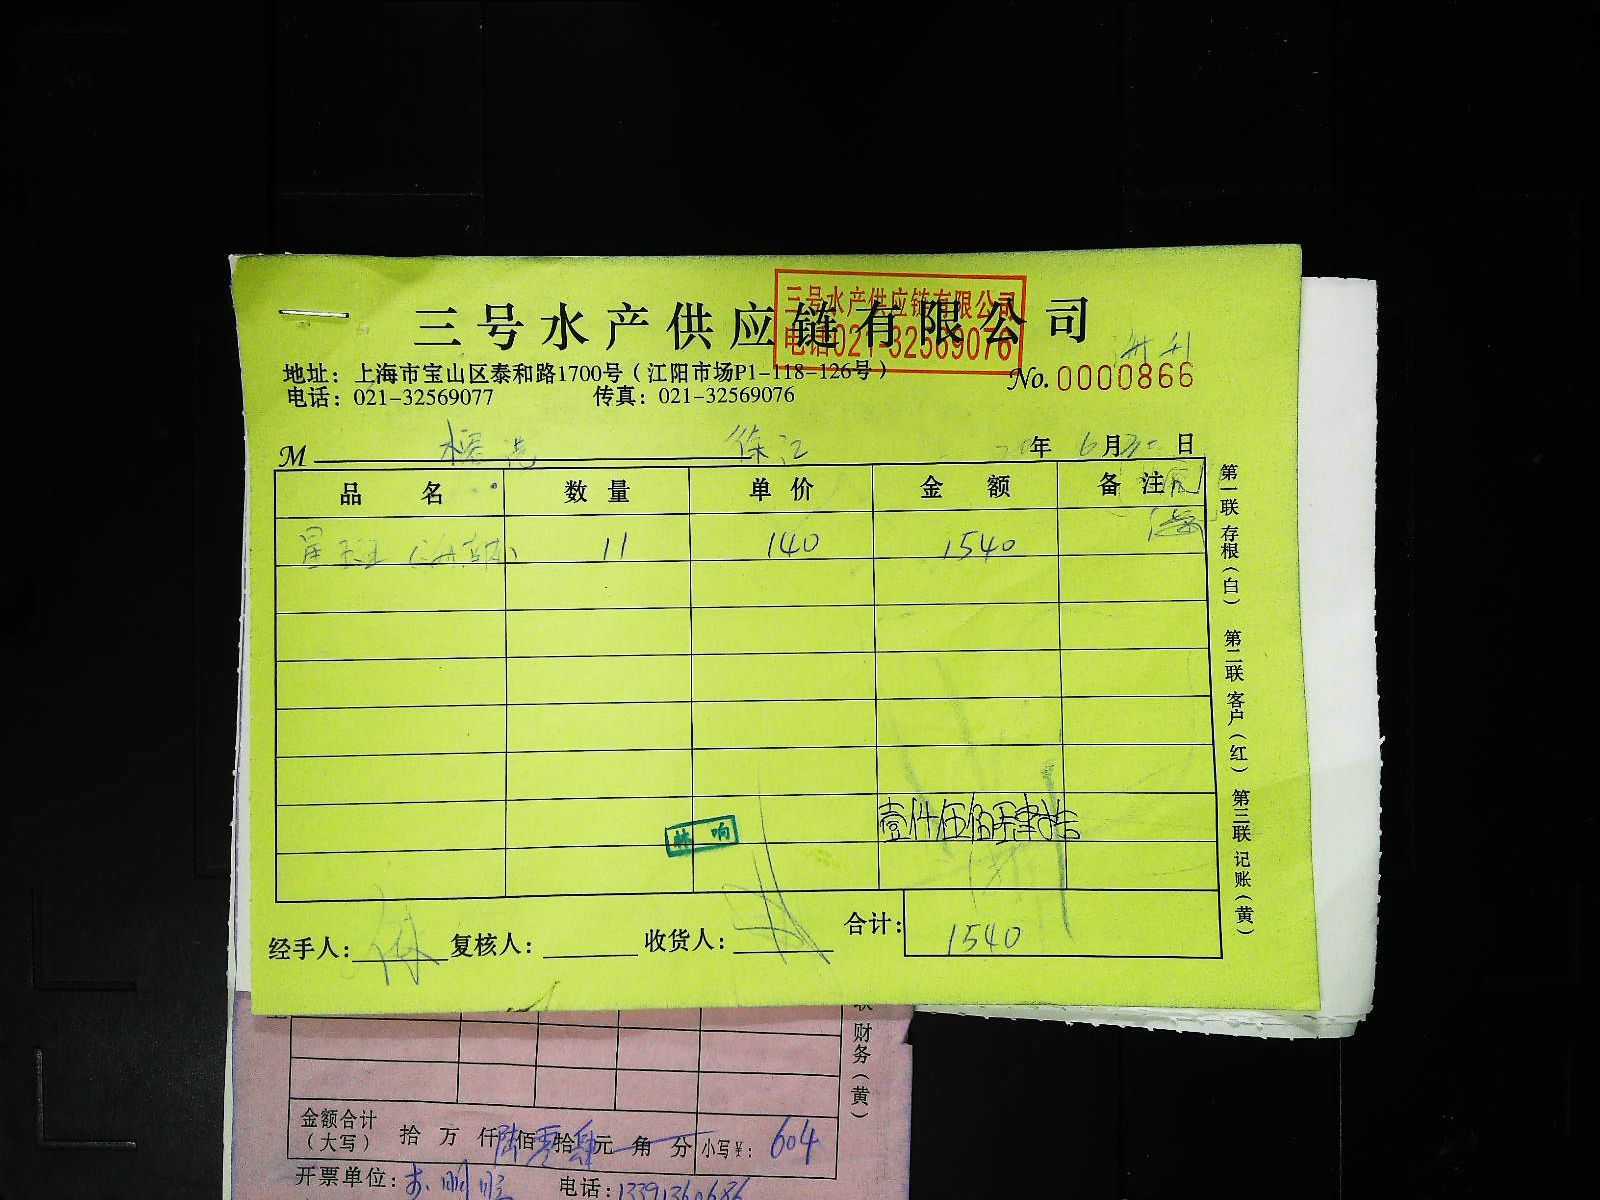 三号水产供应链有限公司
三号水产供应链有限公司
电话021-32569076
地址：上海市宝山区泰和路1700号（江阳市场P1-118-126号）
No. 0000866
电话：021-32569077 传真：021-32569076
M 徐江 年 6月 日
品名 数量 单价 金额 备注
星斑 11 140 1540
壹仟伍佰肆拾
经手人： 复核人： 收货人： 合计：1540
第一联 存根（白） 第二联 客户（红） 第三联 记账（黄）
联 财务（黄）
金额合计（大写） 拾 万 仟陆佰零拾肆元 角 分 小写￥：604
开票单位： 电话：13391360686